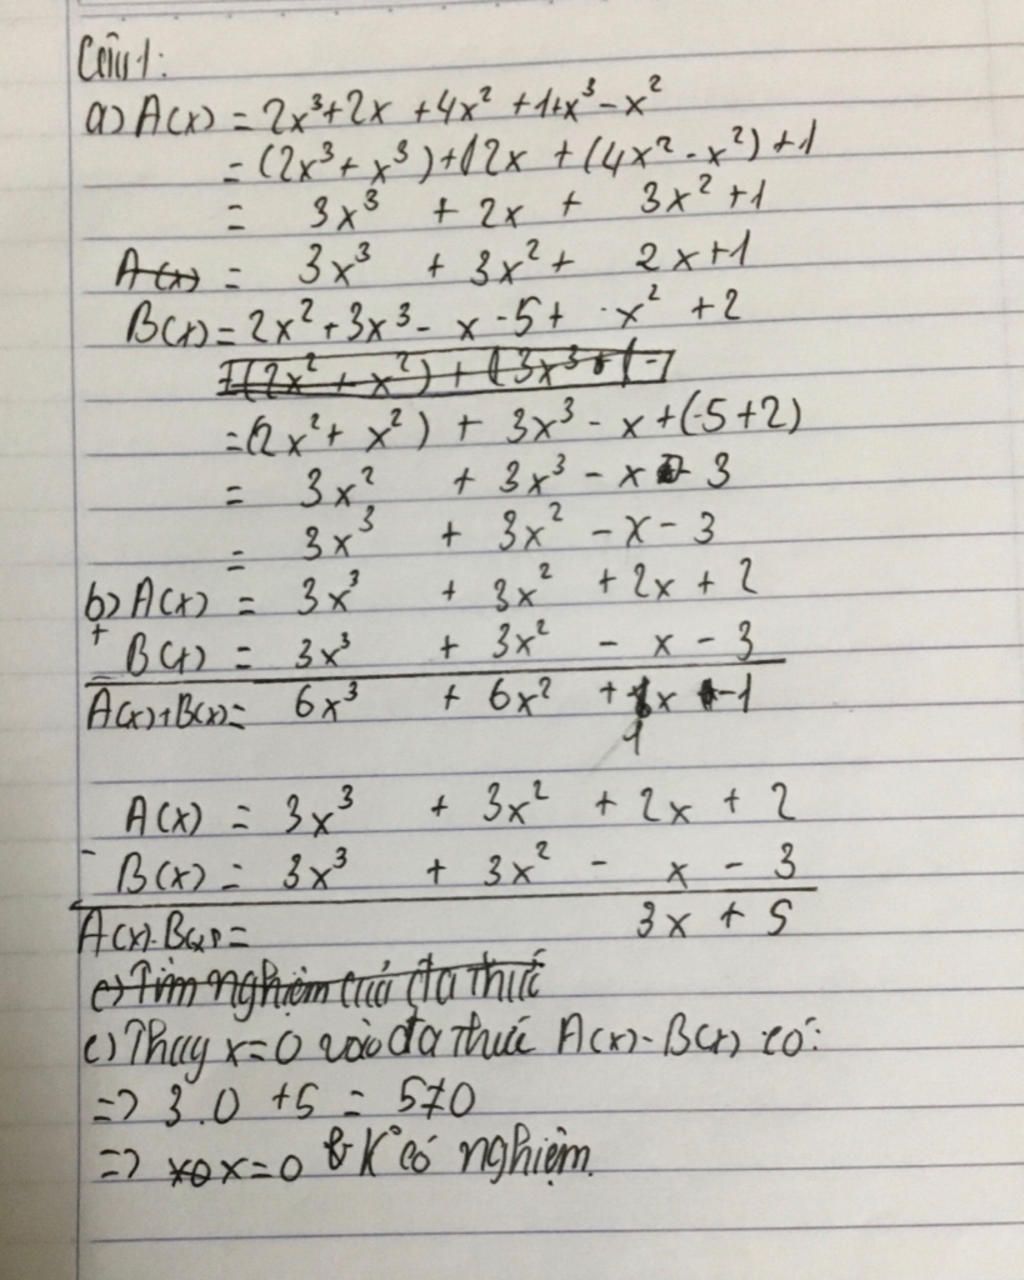 Câu 1:
a) A(x) = 2x³+2x +4x² +1+x³-x²
= (2x³+x³)+(2x + (4x²-x²)+1
= 3x³ + 2x + 3x²+1
A(x) = 3x³ + 3x²+ 2x+1
B(x) = 2x²+3x³- x -5+ x² +2
=(2x²+x²)+(3x³+(-
=(2x²+ x²) + 3x³- x+(-5+2)
= 3x² + 3x³- x - 3
= 3x³ + 3x² -x- 3
b) A(x) = 3x³ + 3x² + 2x + 2
+
B(x) = 3x³ + 3x² - x - 3
A(x)+B(x)= 6x³ + 6x² + x -1
1
A(x) = 3x³ + 3x² + 2x + 2
-
B(x) = 3x³ + 3x² - x - 3
A(x)-B(x) = 3x + 5
c) Tìm nghiệm của đa thức
c) Thay x=0 vào đa thức A(x)-B(x) có:
=> 3.0 +5 = 5≠0
=> x=0 K° có nghiệm.